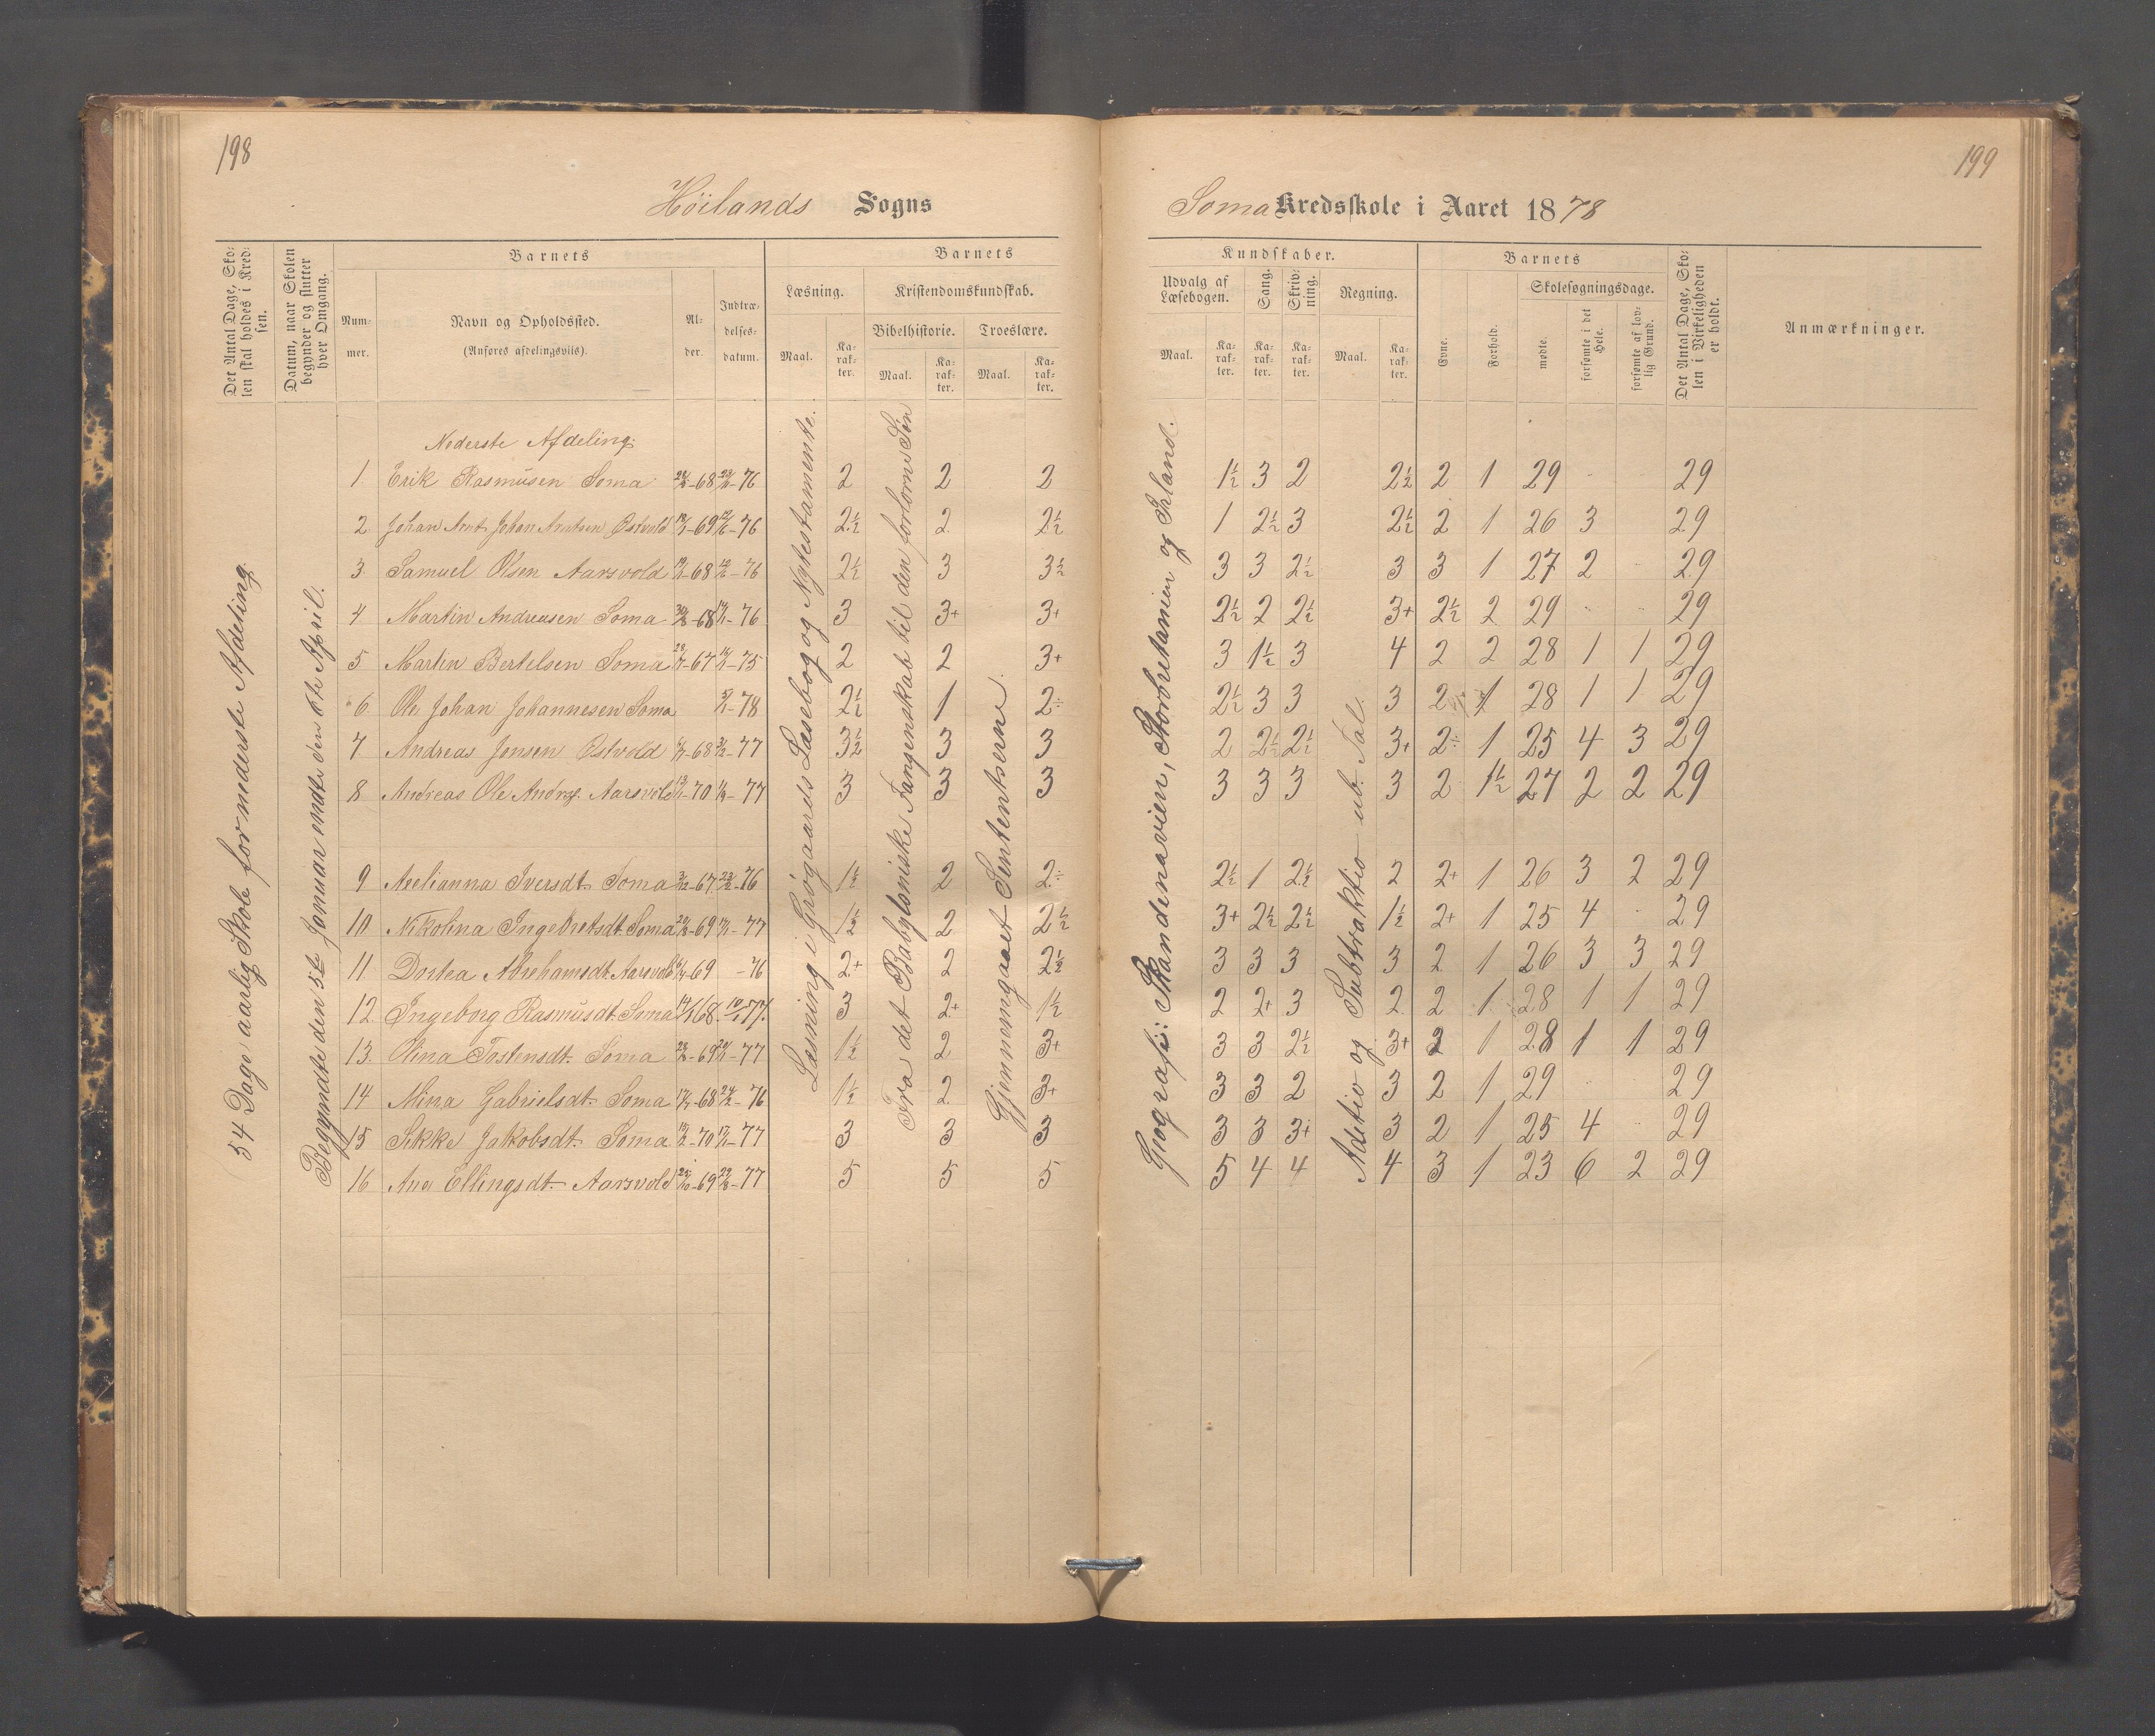 198
199
Höilands Sogns
Soma Kredsskole i Aaret 1878
Det Antal Dage, Sko-
len skal holdes i Kred-
sen.
Datum, naar Skolen
begynder og slutter
hver Omgang.
Barnets
Num-
mer.
Navn og Opholdssted.
(Anføres afdelingsvils).
Al-
der.
Indtræ-
delses-
datum.
Barnets
Læsning.
Maal.
Ka-
rak-
ter.
Kristendomskundskab.
Bibelhistorie.
Maal.
Ka-
rak-
ter.
Troeslære.
Maal.
Ka-
rak-
ter.
Kundskaber.
Udvalg af
Læsebogen.
Maal.
Ka-
rak-
ter.
Sang.
Ka-
rak-
ter.
Skriv-
ning.
Ka-
rak-
ter.
Regning.
Maal.
Ka-
rak-
ter.
Barnets
Evne.
Forhold.
Skolesøgningsdage.
mødte.
forsømte i det
Hele.
forsømte af lov-
lig Grund.
Det Antal Dage, Sko-
len i Virkeligheden
er holdt.
Anmærkninger.
54 Dage aarlig Skole for nederste Afdeling.
Begyndte den 3te Januar endte den 6te April.
Læsning i Grøgaards Læsebog og Nytestamente.
Fra det Babyloniske Fangenskab til den forlorne Søn
Gjennemgaaet Sententserne.
Geografi: Skandinavien, Storbritanien og Irland.
Aditio og Subtraktio ub. Tal.
Nederste Afdeling.
1 Erik Rasmusen Soma -68 -76 2 2 2 1½ 3 2 2½ 2 1 29 29
2 Johan Arnt Johan Arntsen Østvold -69 -76 2½ 2 2½ 1 2½ 3 2½ 2 1 26 3 29
3 Samuel Olsen Aarsvold -68 -76 2½ 3 3½ 3 3 2½ 3 3 1 27 2 29
4 Martin Andreasen Soma -68 -76 3 3+ 3+ 2½ 2 2½ 3+ 2½ 2 29 29
5 Martin Bertelsen Soma -67 -75 2 2 3+ 3 1½ 3 4 2 2 28 1 1 29
6 Ole Johan Johannesen Soma -78 2½ 1 2÷ 2½ 3 3 3 2 1 28 1 1 29
7 Andreas Jensen Østvold -68 -77 3½ 3 3 2 2½ 2½ 3+ 2÷ 1 25 4 3 29
8 Andreas Ole Andrs. Aarsvold -70 -77 3 3 3 3 3 3 3 2 1½ 27 2 2 29
9 Aelianna Iversdt. Soma -67 -76 1½ 2 2÷ 2½ 1 2½ 2 2+ 1 26 3 2 29
10 Nikolina Ingebretsdt. Soma -69 -77 1½ 2 2½ 3+ 2½ 2½ 1½ 2+ 1 25 4 29
11 Dortea Abrehamsdt. Aarsvold -69 -76 2+ 2 2½ 3 3 3 3 2 1 26 3 3 29
12 Ingeborg Rasmusdt. Soma 68 77 3 2+ 1½ 2 2+ 3 2 2 1 28 1 1 29
13. Olina Tostensdt. Soma -69 -77 1½ 2 3+ 3 3 2½ 3+ 2 1 28 1 1 29
14 Mina Gabrielsdt. Soma -68 -76 1½ 2 3+ 3 3 2 3 2 1 29 29
15 Sikke Jakobsdt. Soma -70 -77 3 3 3 3 3 3+ 3 2 1 25 4 29
16 Ana Ellingsdt. Aarsvold -69 -77 5 5 5 5 4 4 4 3 1 23 6 2 29